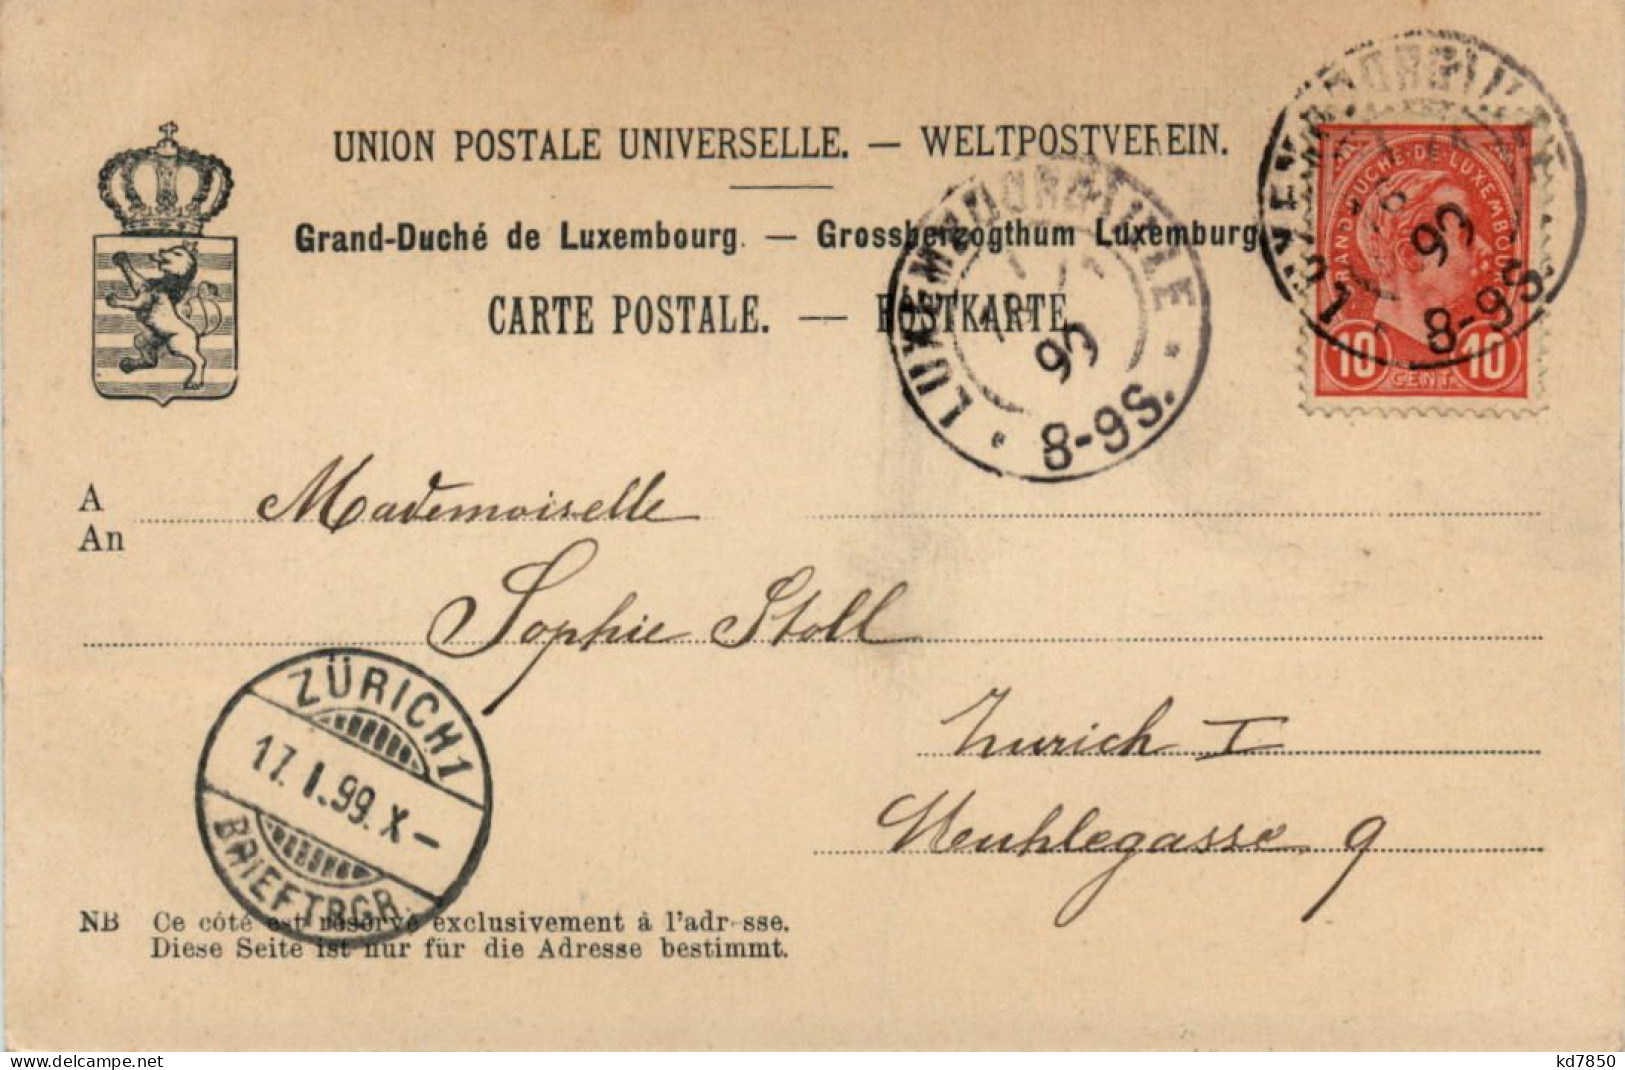 UNION POSTALE UNIVERSELLE. — WELTPOSTVEREIN.
Grand-Duché de Luxembourg. — Grossherzogthum Luxemburg
CARTE POSTALE. — POSTKARTE
LUXEMBOURG-VILLE
99
8-9S.
LUXEMBOURG-VILLE
99
8-9S.
GRAND-DUCHÉ-DE-LUXEMBOURG
10 CENT. 10
A
An
Mademoiselle
Sophie Stoll
Zurich I
Meuhlegasse 9
ZÜRICH 1
17.I.99.X-
BRIEFTRGR.
NB Ce côté est réservé exclusivement à l'adresse.
Diese Seite ist nur für die Adresse bestimmt.
www.delcampe.net
kd7850